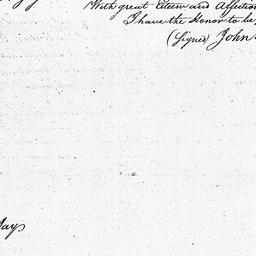 With great Esteem and Affection
I have the Honor to be,
(Signed) John
Jay.